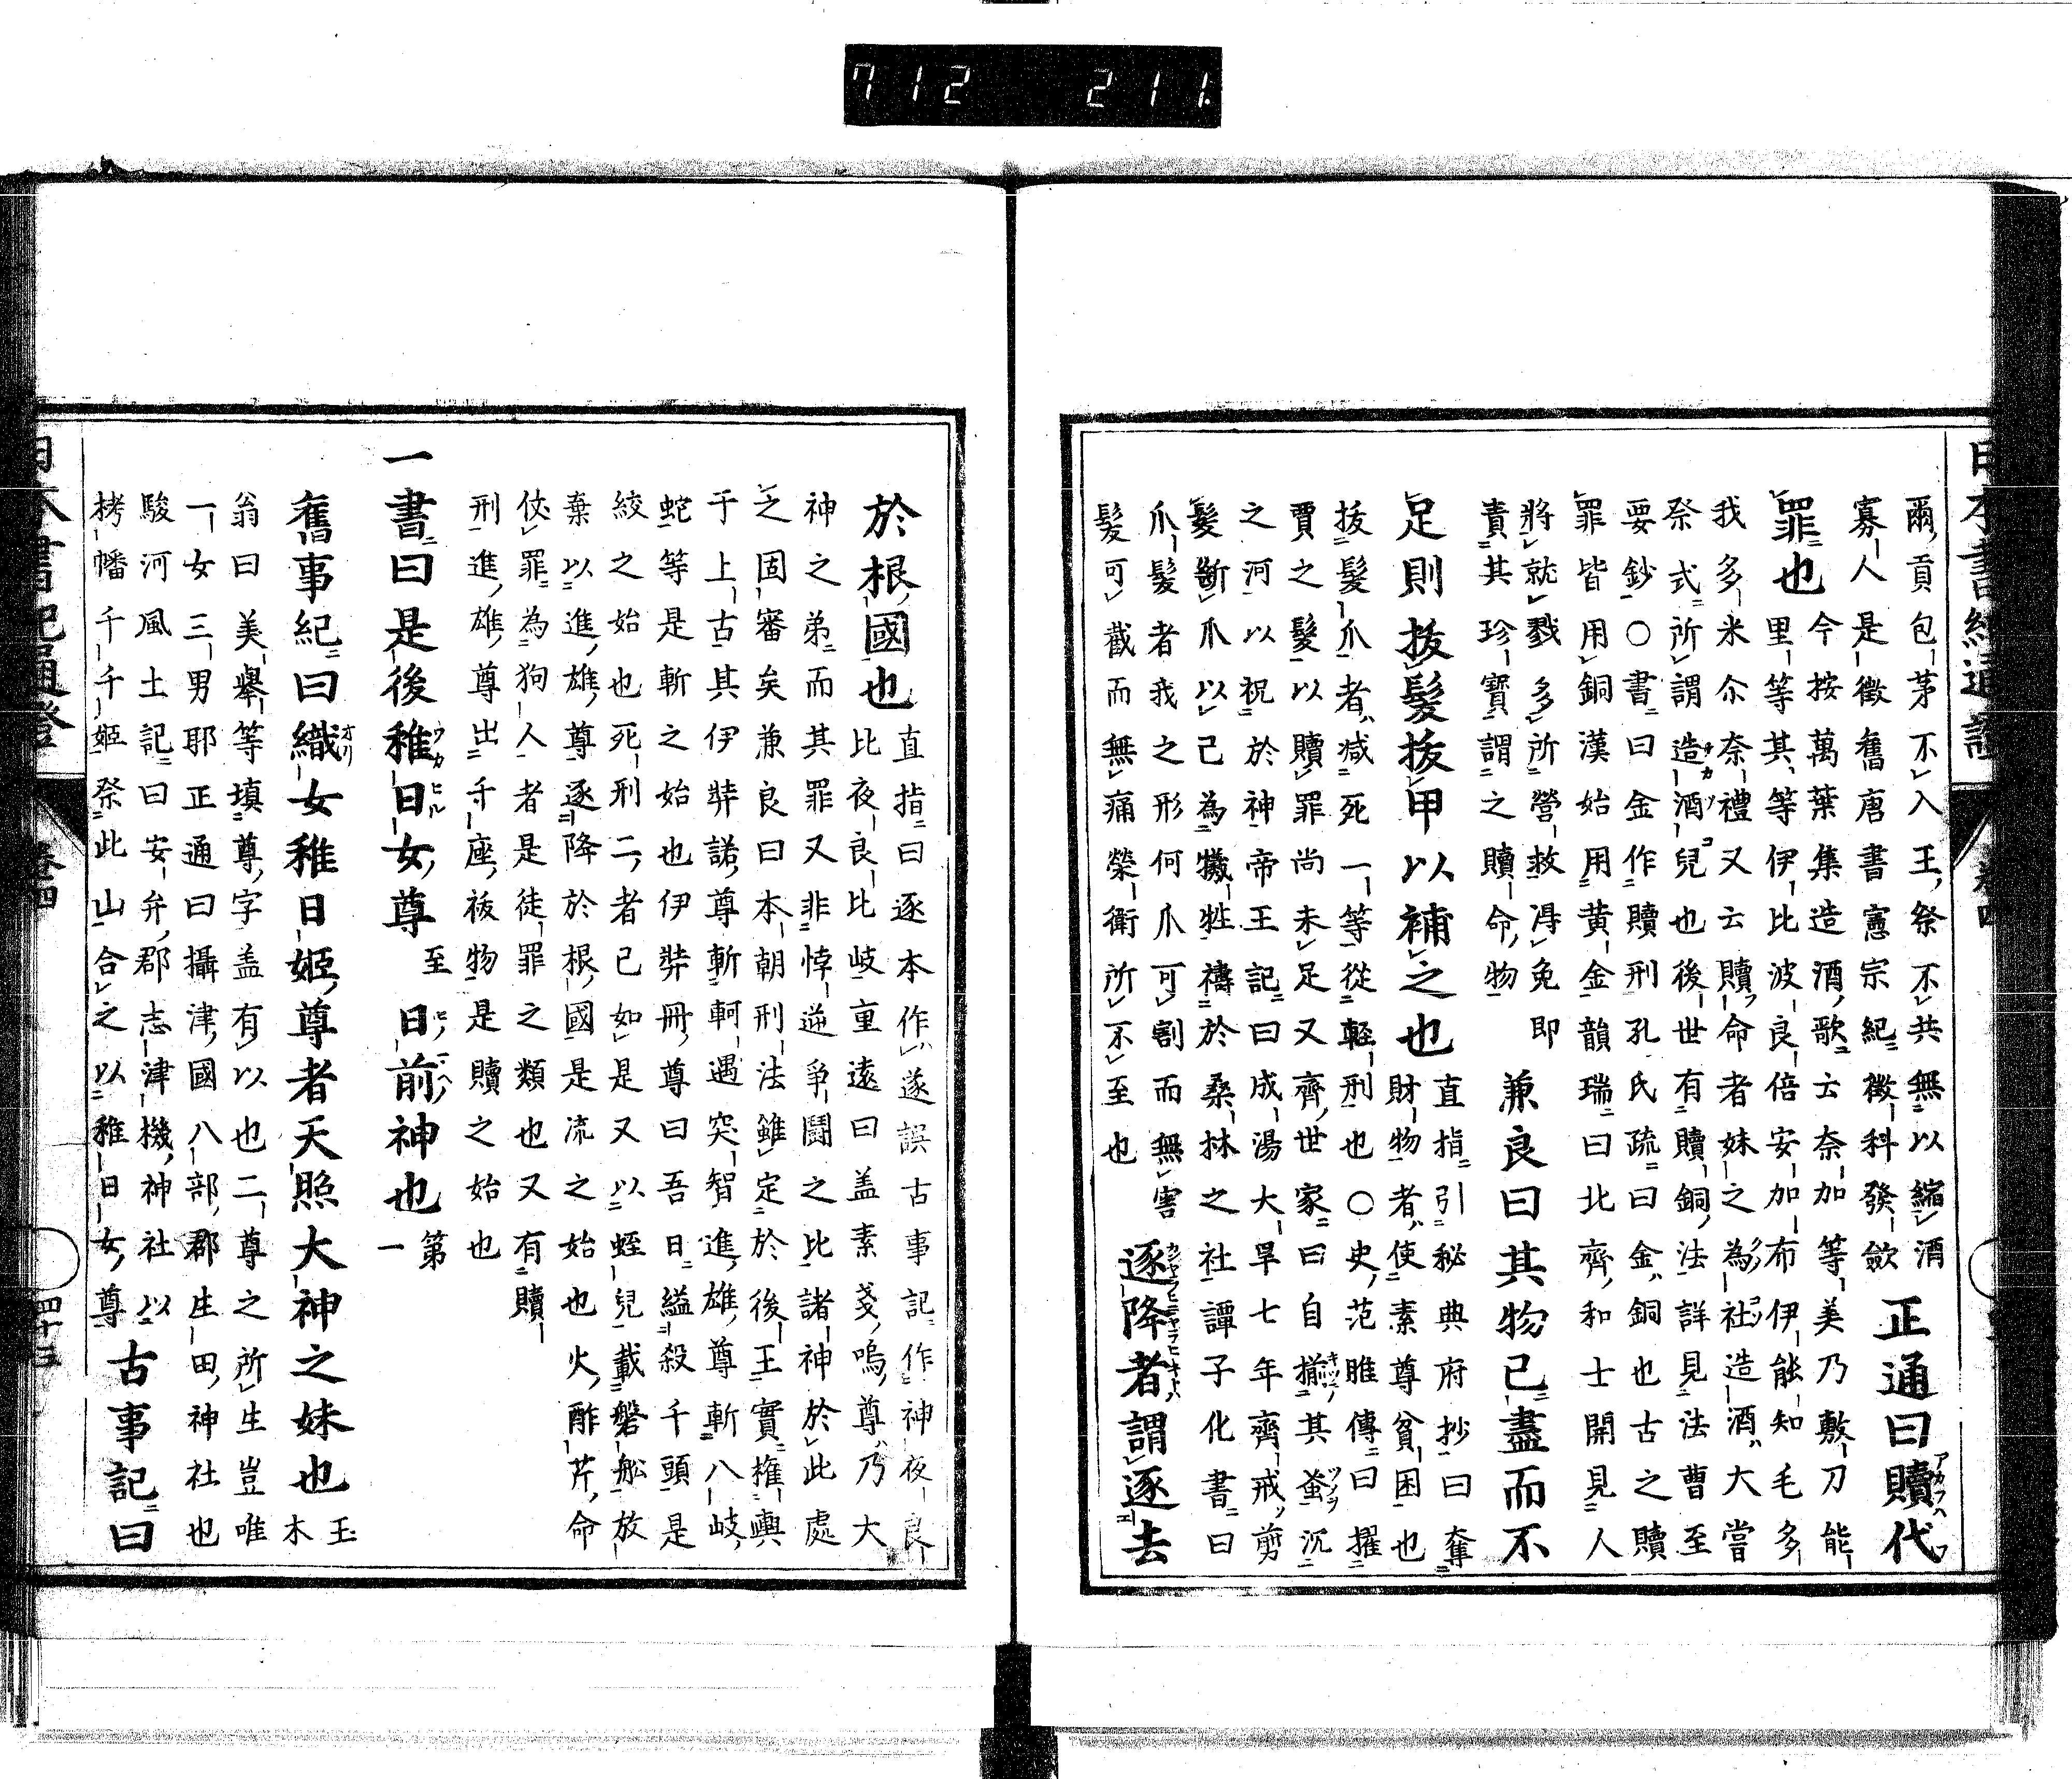 日本書紀通證 卷四
爾貢包茅不入王祭不共無以縮酒
寡人是徵舊唐書憲宗紀徵科發斂
正通曰贖代アカフハ
罪也
今按萬葉集造酒歌云奈加等美乃敷刀能
里等其等伊比波良倍安加布伊能知毛多
我多米尒奈禮又云贖命者妹之為社造酒大嘗
祭式所謂造酒兒也後世有贖銅法詳見法曹至
要鈔○書曰金作贖刑孔氏疏曰金銅也古之贖
罪皆用銅漢始用黄金韻瑞曰北齊和士開見人
將就戮多所營救得免即
責其珍寶謂之贖命物
兼良曰其物已盡而不
足則拔髮拔甲以補之也
直指引秘典府抄曰奪
財物者使素尊貧困也
拔髮爪者減死一等從輕刑也○史范睢傳曰擢
賈之髮以贖罪尚未足又齊世家曰自揃其蚤沉
之河以祝於神帝王記曰成湯大旱七年齊戒剪
髮斷爪以己為犠牲禱於桑林之社譚子化書曰
爪髮者我之形何爪可割而無害
髮可截而無痛榮衛所不至也
逐降者謂逐去
於根國也
直指曰逐本作遂誤古事記作神夜良
比夜良比岐重遠曰盖素戔嗚尊乃大
神之弟而其罪又非悖逆爭鬪之比諸神於此處
之固審矣兼良曰本朝刑法雖定於後王實權輿
于上古其伊弉諾尊斬軻遇突智進雄尊斬八岐
蛇等是斬之始也伊弉冊尊曰吾日縊殺千頭是
絞之始也死刑二者已如是又以蛭兒載磐船放
棄以進雄尊逐降於根國是流之始也火酢芹命
伏罪為狗人者是徒罪之類也又有贖
刑進雄尊出千座祓物是贖之始也
一書曰是後稚日女尊至日前神也第一
舊事紀曰織女稚日姬尊者天照大神之妹也玉木
翁曰美舉等填尊字盖有以也二尊之所生豈唯
一女三男耶正通曰攝津國八部郡生田神社也
駿河風土記曰安弁郡志津機神社以
栲幡千千姬祭此山合之以稚日女尊
古事記曰
日本書紀通證 卷四 四十三